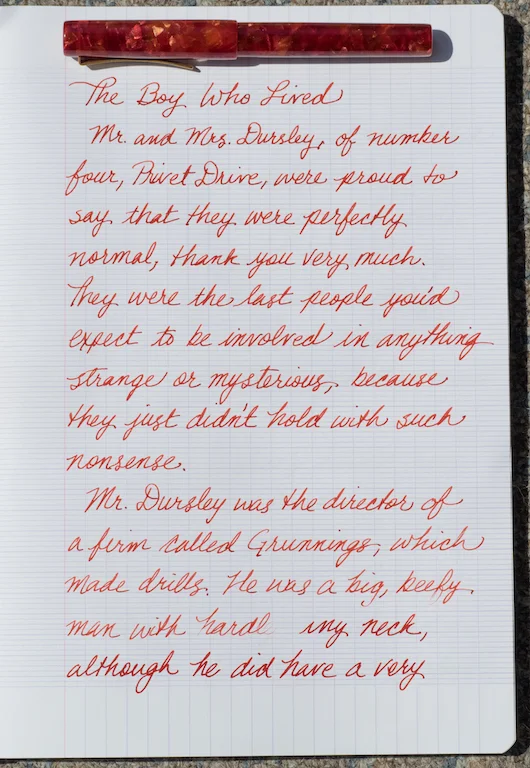 The Boy Who Lived
Mr. and Mrs. Dursley, of number
four, Privet Drive, were proud to
say that they were perfectly
normal, thank you very much.
They were the last people you'd
expect to be involved in anything
strange or mysterious, because
they just didn't hold with such
nonsense.
Mr. Dursley was the director of
a firm called Grunnings, which
made drills. He was a big, beefy
man with hardl ny neck,
although he did have a very